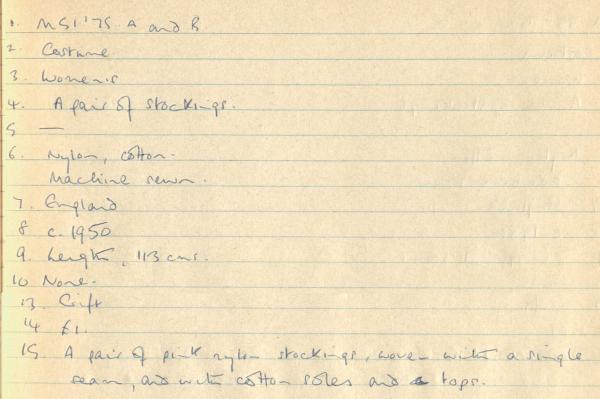 1. M51'75 A and B.
2. Costume
3. Women's
4. A pair of stockings.
5 —
6. Nylon, cotton.
Machine sewn.
7. England
8 c. 1950
9. Length, 113 cms.
10 None.
13. Gift
14 £1.
15. A pair of pink nylon stockings, woven with a single
seam, and with cotton soles and tops.